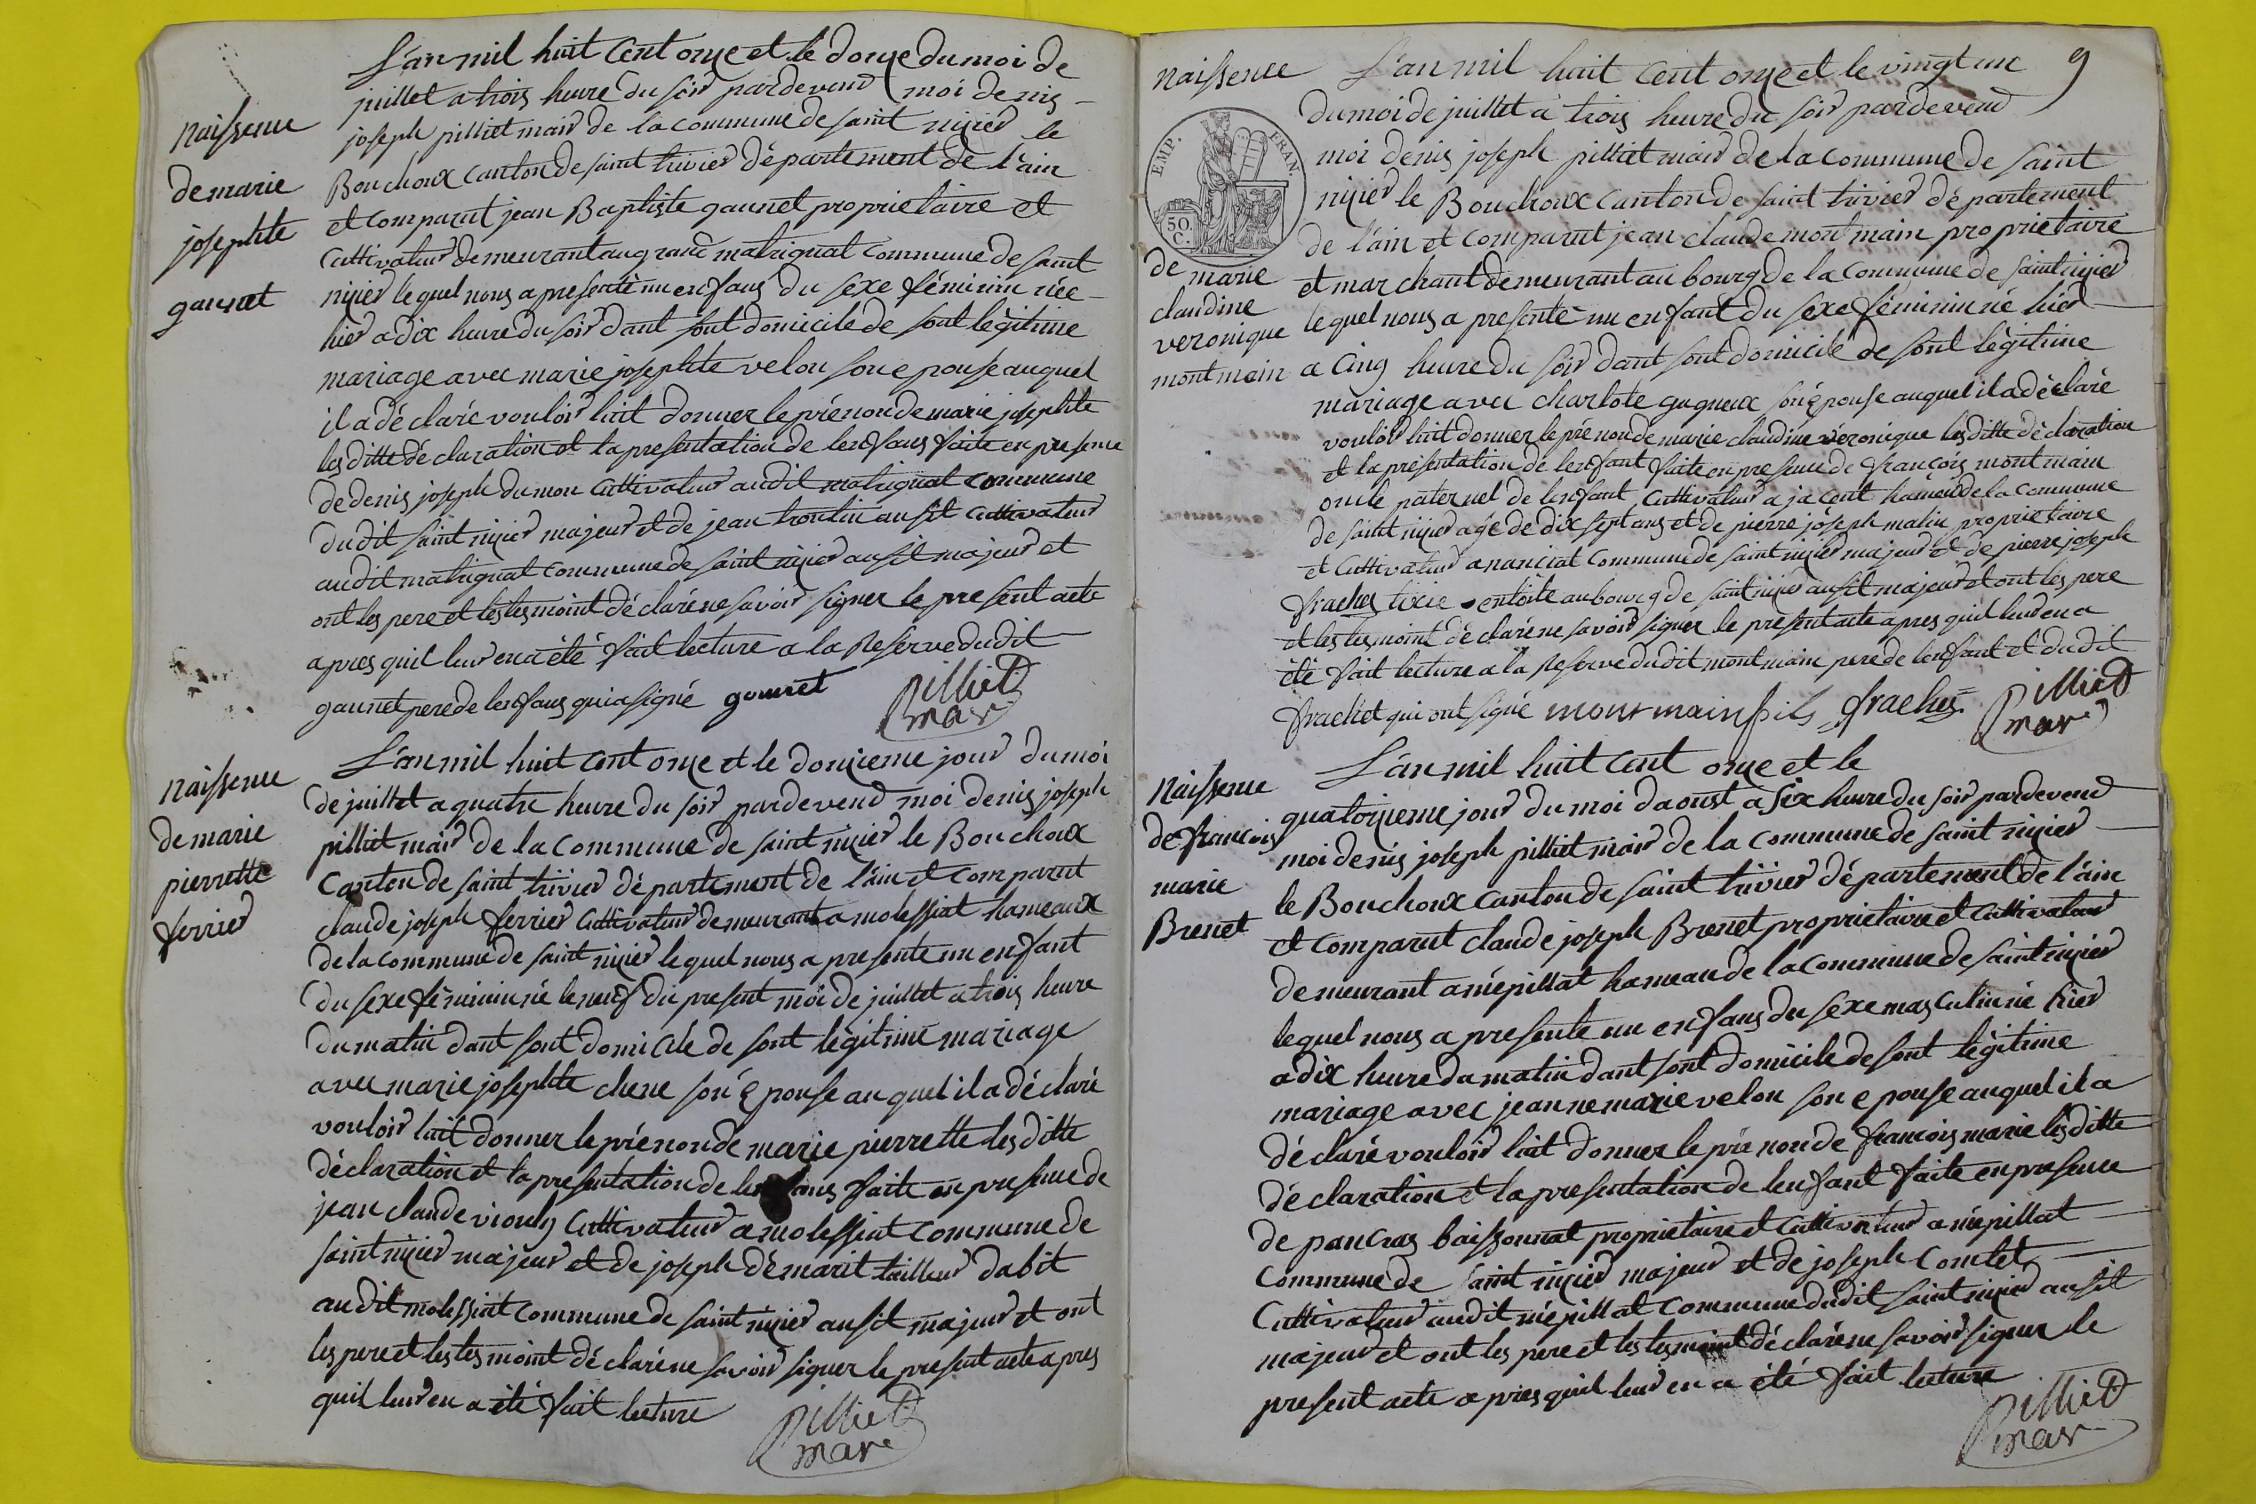 L'an mil huit cent onze et le douze du moi de
juillet a trois heure du soir pardevend moi denis
joseph pilliet mair de la commune de saint nizier le
Bouchoux canton de saint trivier département de l'ain
et comparut jean Baptiste gaunet proprietaire et
Cultivateur demeurant au grand matrignat commune de saint
nizier lequel nous a presenté un enfans du sexe féminin née
hier a dix heure du soir dant sont domicile de sont légitime
mariage avec marie josephte velon son epouse auquel
il a déclaré vouloir luit donner le prénon de marie josephte
les ditte déclaration et la presentation de lenfans faite en presence
de denis joseph dumon cultivateur audit matrignat commune
dudit saint nizier majeur et de jean trontin ausit cultivateur
audit matrignat commune de saint nizier ausit majeur et
ont les pere et les tesmoint déclaré ne savoir signer le present acte
apres quil leur en a été fait lecture a la Reserve dudit
gaunet pere de lenfans qui a signé gaunet
Pilliet
mar
naissence
de marie
josephte
gaunet
L'an mil huit cent onze et le douzieme jour du moi
de juillet a quatre heure du soir pardevend moi denis joseph
pilliet mair de la commune de saint nizier le Bouchoux
Canton de saint trivier département de l'ain et comparut
claude joseph ferrier Cultivateur demeurant a molessiat hameaux
de la commune de saint nizier lequel nous a presente un enfant
du sexe féminin né le neuf du present moi de juillet a trois heure
du matin dant sont domicile de sont légitime mariage
avec marie josephte chene son épouse auquel il a déclaré
vouloir luit donner le prénon de marie pierrette les ditte
déclaration et la presentation de lenfans faite en presence de
jean claude Cultivateur a molessiat commune de
saint nizier majeur et de joseph démarit tailleur dabit
audit molessiat commune de saint nizier ausit majeur et ont
les pere et les tesmoint déclaré ne savoir signer le present acte apres
quil leur en a été fait lecture
Pilliet
mar
naissence
de marie
pierrette
ferrier
9
naissence
L'an mil huit cent onze et le vingt un
du moi de juillet a trois heure du soir pardevend
moi denis joseph pilliet mair de la commune de saint
nizier le Bouchoux canton de saint trivier département
de l'ain et comparut jean claude montmain proprietaire
et marchant demeurant au bourg de la commune de saint nizier
lequel nous a presenté un enfant du sexe féminin né hier
a cinq heure du soir dant sont domicile de sont légitime
mariage avec charlote gagneux son épouse auquel il a déclaré
vouloir luit donner le prénon de marie claudine véronique les ditte déclaration
et la présentation de lenfant faite en presence de françois montmain
oncle paternel de lenfant Cultivateur a hameau de la commune
de saint nizier age de dix sept ans et de pierre joseph malin proprietaire
et Cultivateur a nanciat Commune de saint nizier majeur et de pierre joseph
frachet au bourg de saint nizier ausit majeur et ont les pere
et les tesmoint déclaré ne savoir signer le présent acte apres quil leur en a
été fait lecture a la Reserve dudit montmain pere de lenfant et dudit
frachet qui ont signé montmain fils frachet
Pilliet
mar
EMP. FRAN.
50.
C.
de marie
claudine
veronique
montmain
L'an mil huit cent onze et le
quatorzieme jour du moi daoust a six heure du soir pardevend
moi denis joseph pilliet mair de la commune de saint nizier
le Bouchoux Canton de saint trivier département de l'ain
et comparut claude joseph Brenet proprietaire et cultivateur
demeurant a mépillat hameau de la commune de saint nizier
lequel nous a presente un enfans du sexe masculin né hier
a dix heure du matin dant sont domicile de sont légitime
mariage avec jeanne marie velon son epouse auquel il a
déclaré vouloir luit donner le prénon de françois marie les ditte
déclaration et la presentation de lenfant faite en presence
de pancras baissonnat proprietaire et Cultivateur a mépillat
Commune de saint nizier majeur et de joseph Comtet
Cultivateur audit mépillat commune dudit saint nizier ausit
majeur et ont les pere et les tesmoint déclaré ne savoir signer le
present acte apres quil leur en a été fait lecture
Pilliet
mar
naissence
de françois
marie
Brenet